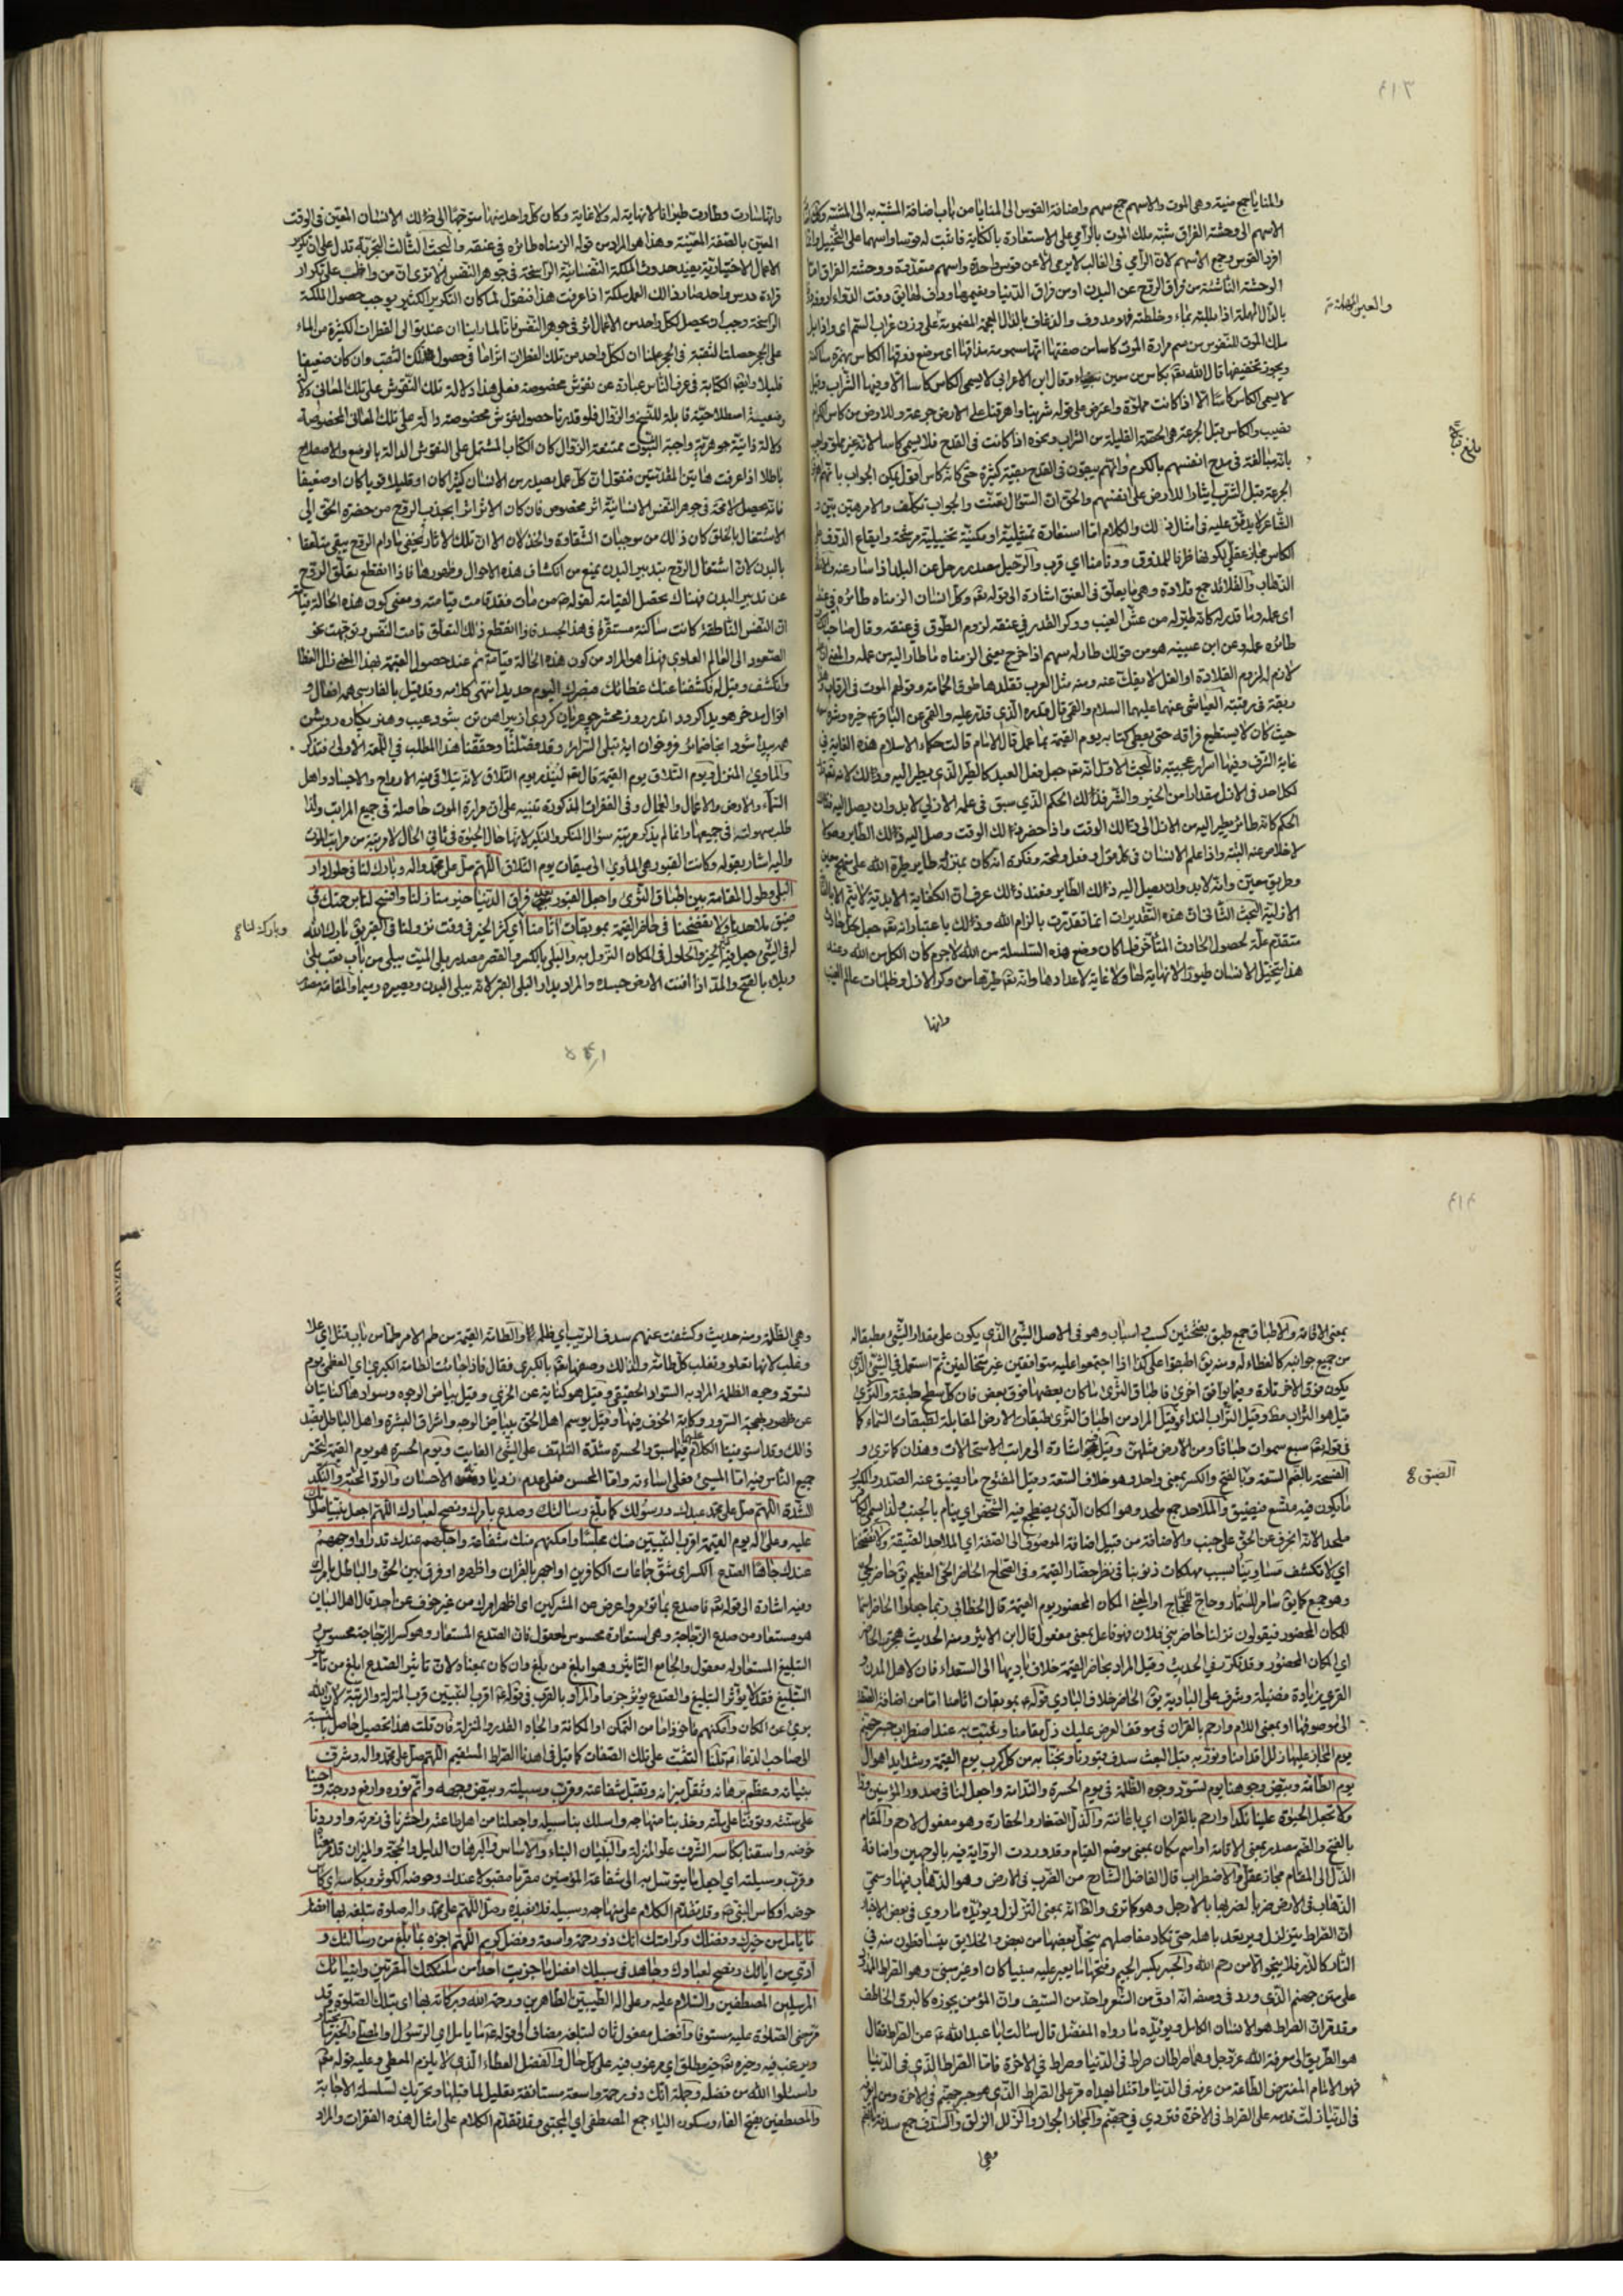 ٤١٣
والمنايا جمع منية وهى الموت والاسهم جمع سهم واضافة القوس الى المنايا من باب اضافة المشبه به الى المشبه
الاسهم الى وحشة الفراق شبه ملك الموت بالرامي على الاستعارة بالكناية فاثبت له قوسا واسهما على التخييل
افرد القوس وجمع الاسهم لان الرامي فى الغالب لا يرمى الا عن قوس واحدة واسهم متعددة ووحشة الفراق اما
الوحشة الناشئة من فراق الروح عن البدن او من فراق الدنيا
بالدال المهملة اذا بللته بماء وخلطته فهو مدوف والذعاف بالذال المعجمة المضمومة على وزن غراب السم اى واذا بل
والعين المهملة
ملك الموت للنفوس من سم مرارة الموت كاسا من صفتها انها مسمومة مذاقها اى موضع ذوقها الكاس بهمزة ساكنة
ويجوز تخفيفها قال الله تعالى بكاس من معين وقال ابن الاعرابى لا يسمى الكاس كاسا الا وفيها الشراب وقيل
لا يسمى الكاس كاسا الا اذا كانت مملوة واعترض على قوله شربنا واهرقنا على الارض جرعة وللارض من كاس الكرام
نصيب والكاس قبل الجرعة هى الحصة القليلة من الشراب ونحوه اذا كانت فى القدح فلا يسمى كاسا لانه غير مملو
بانه مبالغة فى مدح انفسهم بالكرم وانهم يبقون فى القدح بقية كثيرة حتى كانه كاس اقول يمكن الجواب
الجرعة قبل الشرب ايثارا للارض على انفسهم والحق ان السؤال تعنت والجواب تكلف والامر هين
الشاعر لا يدقق عليه فى امثال ذلك والكلام اما استعارة تمثيلية او مكنية تخييلية مرشحة وايقاع الذوق على
الكاس مجاز عقلي لكونها ظرفا للمذوق ودنا منا اي قرب والرحيل مصدر رحل عن البلد اذا سار عنه
الذهاب والقلائد جمع قلادة وهى ما يعلق فى العنق اشارة الى قوله تعالى وكل انسان الزمناه طائره فى عنقه
اى عمله وما قدر له كانه طير له من عش الغيب ووكر القدر فى عنقه لزوم الطوق فى عنقه وقال صاحب
طائره عمله وعن ابن عيينه هو من قولك طار له سهم اذا خرج يعنى الزمناه ما طار اليه من عمله والمعنى
لازم له لزوم القلادة او الغل لا يفك عنه ومنه مثل العرب تقلدها طوق الحمامة وقولهم الموت فى الرقاب
ربقة فى رقبته العياشى عنهما عليهما السلام والقمى قال قدره الذي قدر عليه والقمى عن الباقر ع خيره وشره معه
حيث كان لا يستطيع فراقه حتى يعطى كتابه يوم القيمة بما عمل قال الامام قالت حكماء الاسلام هذه الغاية فى
غاية الشرف وفيها اسرار عجيبة فالبحث الاول انه تعالى جعل فعل العبد كالطير الذي يطير اليه وذلك لانه تعالى
لكل احد فى الازل مقدارا من الخير والشر فذلك الحكم الذي سبق فى علمه الازلي لا بد وان يصل اليه
الحكم كانه طائر يطير اليه من الازل الى ذلك الوقت واذا حضر ذلك الوقت وصل اليه ذلك الطاير
لا خلاص عنه البتة واذا علم الانسان فى كل قول وفعل ولمحة وفكرة انه كان بمنزلة طاير طيره الله على منهج معين
وطريق معين وانه لا بد وان يصل اليه ذلك الطاير فعند ذلك عرف ان الكفاية الابدية لا تتم الا
الازلية البحث الثانى ان هذه التقديرات انما تقدرت بالزام الله وذلك باعتبار انه تعالى جعل لكل حادث
متقدم علة لحصول الحادث المتاخر فلما كان وضع هذه السلسلة من الله لا جرم كان الكل من الله وعند
هذا يتخيل الانسان طيورا لا نهاية لها ولا غاية لاعدادها وانه تعالى طيرها من وكر الازل وظلمات عالم الغيب
وانها
وانها سارت وطارت طيرانا لا نهاية له ولا غاية وكان كل واحد منها متوجها الى ذلك الانسان المعين فى الوقت
المعين بالصفة المعينة وهذا هو المراد من قوله الزمناه طائره فى عنقه والبحث الثالث التجربة تدل على ان تكرير
الاعمال الاختيارية يفيد حدوث الملكة النفسانية الراسخة فى جوهر النفس الا ترى ان من واظب على تكرار
قراءة درس واحد صار ذلك العمل ملكة اذا عرفت هذا فنقول لما كان التكرير الكثير يوجب حصول الملكة
الراسخة وجب ان يحصل لكل واحد من الاعمال اثر فى جوهر النفس فانا لما راينا ان عند توالى القطرات الكثيرة من الماء
على الحجر حصلت الثقبة فى الحجر علمنا ان لكل واحد من تلك القطرات اثرا ما فى حصول ذلك الثقب وان كان ضعيفا
قليلا وايضا الكتابة فى عرف الناس عبارة عن نقوش مخصوصة فعلى هذا دلالة تلك النقوش على تلك المعانى دلالة
وضعية اصطلاحية قابلة للنسخ والزوال فلو قدرنا حصول نقوش مخصوصة دالة على تلك المعانى المخصوصة
دلالة ذاتية جوهرية واجبة الثبوت ممتنعة الزوال كان الكتاب المشتمل على النقوش الدالة بالوضع والاصطلاح
باطلا اذا عرفت هاتين المقدمتين فنقول ان كل عمل يصدر من الانسان كثيرا كان او قليلا قويا كان او ضعيفا
فانه يحصل لا محة فى جوهر النفس الانسانية اثر مخصوص فان كان الاثر اثرا يجذب الروح من حضرة الحق الى
الاشتغال بالخلق كان ذلك من موجبات الشقاوة والخذلان الا ان تلك الاثار تختفى مادام الروح يبقى متعلقا
بالبدن لان اشتغال الروح بتدبير البدن يمنع من انكشاف هذه الاحوال وظهورها فاذا انقطع تعلق الروح
عن تدبير البدن فهناك يحصل القيامة لقوله ص من مات فقد قامت قيامته ومعنى كون هذه الحالة قيامة
ان النفس الناطقة كانت ساكنة مستقرة فى هذا الجسد فاذا انقطع ذلك التعلق قامت النفس وتوجهت نحو
الصعود الى العالم العلوي فهذا هو المراد من كون هذه الحالة قيامة ثم عند حصول القيمة بهذا المعنى زال الغطاء
وانكشف وقيل له فكشفنا عنك غطائك فبصرك اليوم حديد انتهى كلامه وقد قيل بالفارسى همه افعال و
اقوال مدخر هويدا كردد اندر روز محشر چو عريان كردى از پيراهن تن بشود عيب وهنر يكباره روشن
همه پيدا شود انجا ضمائر فروخوان اية تبلى السرائر وقد فصلنا وحققنا هذا المطلب فى اللمعة الاولى فتذكر
والماوى المنزل ويوم التلاق يوم القيمة قال تعالى لينذر يوم التلاق لانه يتلاقى فيه الارواح والاجساد واهل
السماء والارض والاعمال والعمال وفى الفقرات المذكورة تنبيه على ان مرارة الموت حاصلة فى جميع المراتب ولذا
طلب سهولته فى جميعها وانما لم يذكر مرتبة سؤال المنكر والنكير لانها حال الحيوة فى ثانى الحال لا مرتبة من مراتب الموت
واليه اشار بقوله وكانت القبور هى الماوى الى ميقات يوم التلاق اللهم صل على محمد واله وبارك لنا فى حلول دار
البلى وطول المقامة بين اطباق الثرى واجعل القبور بعد فراق الدنيا خير منازلنا وافسح لنا برحمتك فى
ضيق ملاحدنا ولا تفضحنا فى حاضر القيمة بموبقات اثامنا
وبارك لنا
له فى الشئ جعل فيه الخير والحلول فى المكان النزول به والبلى بالكسر والقصر مصدر بلى الميت يبلى من باب تعب بلى
وبلاء بالفتح والمد اذا افنت الارض جسده والمراد بدار البلى القبر لانه يبلى البدن ويصيره رميما والمقامة مصدر
٤١٤
بمعنى الاقامة والاطباق جمع طبق بفتحتين كسبب واسباب وهو فى الاصل الشئ الذي يكون على مقدار الشئ مطبقا له
من جميع جوانبه كالغطاء له ومنه يق اطبقوا على كذا اذا اجتمعوا عليه متوافقين غير متخالفين ثم استعمل فى الشئ الذي
يكون فوق الاخر تارة وفيما يوافق اخرى فاطباق الثرى ما كان بعضها فوق بعض فان كل سطح طبقة والثرى
قيل هو التراب مطلقا وقيل التراب الندى وقيل المراد من اطباق الثرى طبقات الارض المقابلة لطبقات السماء كما
فى قوله تعالى سبع سموات طباقا ومن الارض مثلهن
الفسحة بالضم السعة والضيق بالفتح والكسر بمعنى واحد وهو خلاف السعة وقيل المفتوح ما يضيق عنه الصدر والكسر
الضيق
ما يكون فيه متسع فيضيق والملاحد جمع ملحد وهو المكان الذي يضطجع فيه الشخص اى ينام بالجنب
ملحد الانه انحرف عن الحق على جنب والاضافة من قبيل اضافة الموصوف الى الصفة اي الملاحد الضيقة ولا تفضحنا
اي لا تكشف مساوينا بسبب مهلكات ذنوبنا فى نظر حضار القيمة وفى الصحاح الحاضر الحى العظيم يق حاضر طى
وهو جمع كما يق سامر للسمار وحاج للحجاج او المعنى المكان المحضور يوم القيمة قال الخطابى ربما جعلوا الحاضر اسما
للمكان المحضور فيقولون نزلنا حاضر بنى فلان فهو فاعل بمعنى مفعول قال ابن الاثير ومنه الحديث هجرة الحاضر
اى المكان المحضور وقد تكرر فى الحديث وقيل المراد بحاضر القيمة خلاف باديها الى السعداء فان لاهل المدن و
القرى زيادة فضيلة وشرف على البادية يق الحاضر خلاف البادي قوله ع بموبقات اثامنا اما من اضافة الصفة
الى موصوفها او بمعنى اللام وارحم بالقران فى موقف العرض عليك ذل مقامنا وثبت به عند اضطراب جسر جهنم
يوم المجاز عليها زلل اقدامنا ونور به قبل البعث سدف قبورنا ونجنا به من كل كرب يوم القيمة وشدايد اهوال
يوم الطامة وبيض وجوهنا يوم تسود وجوه الظلمة فى يوم الحسرة والندامة واجعل لنا فى صدور المؤمنين ودا
ولا تجعل الحيوة علينا نكدا وارحم بالقران اى باعانته والذل الصغار والحقارة وهو مفعول لارحم والمقام
بالفتح والضم مصدر بمعنى الاقامة او اسم مكان بمعنى موضع القيام وقد وردت الرواية فيه بالوجهين واضافة
الذل الى المقام مجاز عقلي والاضطراب قال الفاضل الشارح من الضرب فى الارض وهو الذهاب فيها وسمى
الذهاب فى الارض ضربا لضربها بالارجل وهو كما ترى والظ انه بمعنى التزلزل ويؤيده ما روي فى بعض الاخبار
ان الصراط يتزلزل ويرتعد باهله حتى تكاد مفاصلهم ينحل بعضها من بعض والخلايق يتساقطون منه فى
النار كالذر فلا ينجو الا من رحم الله والجسر بكسر الجيم وفتحها ما يعبر عليه مبنيا كان او غير مبنى وهو الصراط
على متن جهنم الذى ورد فى وصفه انه ادق من الشعر واحد من السيف وان المؤمن يجوزه كالبرق الخاطف
وقد قر ان الصراط هو الانسان الكامل ويؤيده ما رواه المفضل قال سالت ابا عبد الله ع عن الصراط فقال
هو الطريق الى معرفة الله عز وجل وهما صراطان صراط فى الدنيا وصراط فى الاخرة فاما الصراط الذي فى الدنيا
فهو الامام المفترض الطاعة من عرفه فى الدنيا واقتدا بهداه مر على الصراط الذى هو جسر جهنم فى الاخرة ومن لم يعرفه
فى الدنيا زلت قدمه على الصراط فى الاخرة فتردى فى جهنم والمجاز الجواز والزلل الزلق والسدف جمع سدفة
وهى
وهى الظلمة ومنه حديث وكشفت عنهم سدف الريب اي ظلمها والطامة القيمة من طم الامر طما من باب قتل اي علا
وغلب لانها تعلو وتغلب كل طامة ولذلك وصفها تعالى بالكبرى فقال فاذا جاءت الطامة الكبرى اي العظمى ويوم
تسود وجوه الظلمة المراد به السواد الحقيقى وقيل هو كناية عن الخزى وقيل بياض الوجوه وسوادها كنايتان
عن ظهور بهجة السرور وكابة الخوف فيها وقيل يوسم اهل الحق ببياض الوجه واشراق البشرة واهل الباطل بضد
ذلك وقد استوفينا الكلام عليها فيما سبق والحسرة شدة التلهف على الشئ الفايت ويوم الحسرة هو يوم القيمة يتحسر
جميع الناس فيه اما المسئ فعلى اساءته واما المحسن فعلى عدم ازدياد الاحسان والود المحبة والنكد
الشدة اللهم صل على محمد عبدك ورسولك كما بلغ رسالتك وصدع بامرك ونصح لعبادك اللهم اجعل نبينا صلواتك
عليه وعلى اله يوم القيمة اقرب النبيين منك مجلسا وامكنهم منك شفاعة واجلهم عندك قدرا واوجههم
عندك جاها الصدع الكسر اى شق جماعات الكافرين او اجهر بالقران واظهره او فرق بين الحق والباطل بامرك
وفيه اشارة الى قوله تعالى فاصدع بما تؤمر واعرض عن المشركين اى اظهر امرك من غير خوف عن احد قال اهل البيان
هو مستعار من صدع الزجاجة وهى استعارة محسوس لمعقول فان الصدع المستعار وهو كسر الزجاجة محسوس و
التبليغ المستعار له معقول والجامع التاثير وهو ابلغ من بلغ وان كان بمعناه لان تاثير الصدع ابلغ من تاثير
التبليغ فقد لا يؤثر التبليغ والصدع يؤثر جزما والمراد بالقرب فى قوله اقرب النبيين قرب المنزلة والرتبة لان الله
برئ عن المكان وامكنهم ماخوذ اما من التمكن او المكانة والجاه القدر والمنزلة فان قلت هذا تحصيل حاصل بالنسبة
الى صاحب الدعاء قلنا التفت على تلك الصفات كما قيل فى اهدنا الصراط المستقيم اللهم صل على محمد واله وشرف
بنيانه وعظم برهانه وثقل ميزانه وتقبل شفاعته وقرب وسيلته وبيض وجهه واتم نوره وارفع درجته واحينا
على سنته وتوفنا على ملته وخذ بنا منهاجه واسلك بنا سبيله واجعلنا من اهل طاعته واحشرنا فى زمرته واوردنا
حوضه واسقنا بكاسه الشرف علو المنزلة والبنيان البناء والاساس والبرهان الدليل والحجة والميزان قد مر معناه
وقرب وسيلته اي اجعل ما يتوسل به الى شفاعة المؤمنين مقربا مقبولا عندك وحوضه الكوثر وبكاسه اى كاس
حوضه او كاس النبى ص وقد تقدم الكلام على منهاجه وسبيله فلا نعيده وصل اللهم على محمد واله صلوة تبلغه بها افضل
ما يامل من خيرك وفضلك وكرامتك انك ذو رحمة واسعة وفضل كريم اللهم اجزه بما بلغ من رسالاتك و
ادى من اياتك ونصح لعبادك وجاهد فى سبيلك افضل ما جزيت احدا من ملئكتك المقربين وانبيائك
المرسلين المصطفين والسلام عليه وعلى اله الطيبين الطاهرين ورحمة الله وبركاته بها اى بتلك الصلوة وقد
مر معنى الصلوة عليه مستوفا وافضل مفعول ثان لتبلغه مضاف الى قوله ع ما يامل اي الرسول
ويرغب فيه وخيره تعالى خير مطلق اي مرغوب فيه على كل حال والفضل العطاء الذي لا يلزم المعطى وعليه قوله تعالى
واسئلوا الله من فضله وجملة انك ذو رحمة واسعة مستانفة تعليل لما قبلها وتحريك لسلسلة الاجابة
والمصطفين بفتح الفاء وسكون الياء جمع المصطفى اي المجتبى وقد تقدم الكلام على امثال هذه الفقرات والمراد